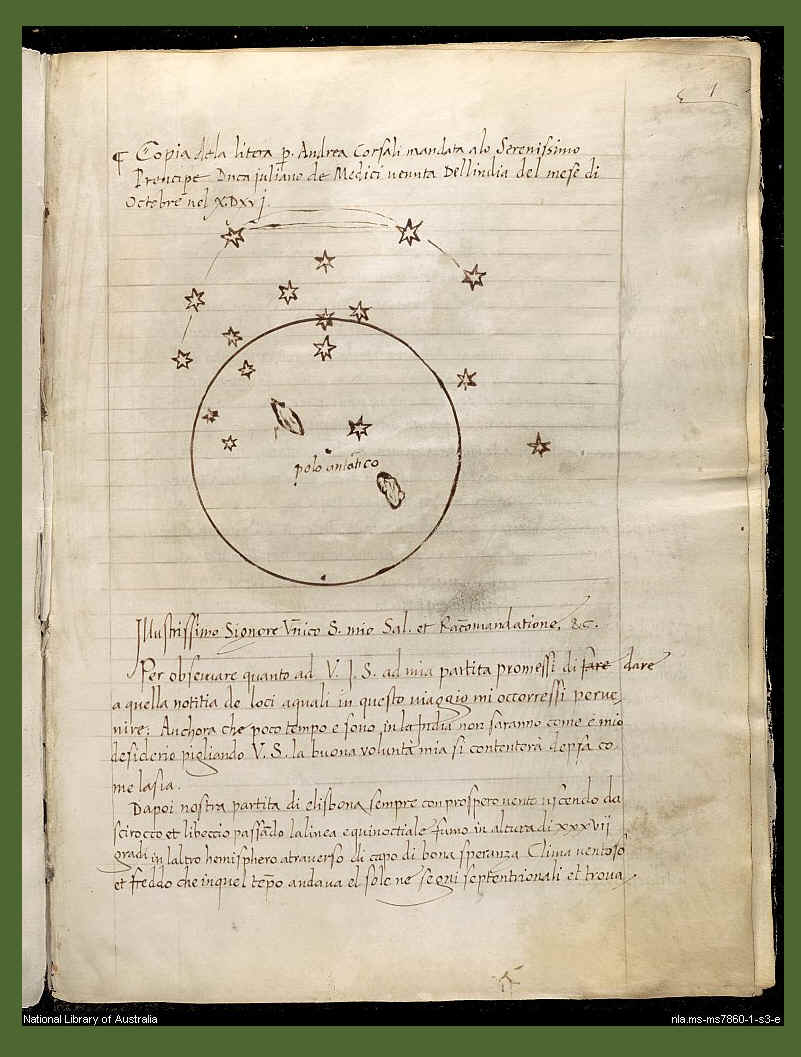 1
¶ Copia della litera p. Andrea Corsali mandata alo Serenissimo
Prencipe Duca juliano de Medici venuta Dellindia del mese di
Octobre nel XDxvj.
polo antātico
Illustrissimo Signore Vnico S. mio Sal. et Racomandatione, &c.
Per observare quanto ad V. I. S. ad mia partita promessi di fare dare
a quella notitia de loci aquali in questo viaggio mi occorressi perve,
nire: Anchora che poco tempo e sono in la India non saranno come e mio
desiderio pigliando V. S. la buona voluntà mia si contenterà depsa co,
me lasia.
Dapoi nostra partita di elisbona sempre con prospero vento uscendo da
scirocco et libeccio passādo lalinea equinoctiale fumo in altura di xxxvij
gradi in laltro hemisphero atraverso di capo di bona speranza Clima ventoso
et freddo che inquel tēpo andava el sole ne segni septentrionali et trova,
National Library of Australia
nla.ms-ms7860-1-s3-e